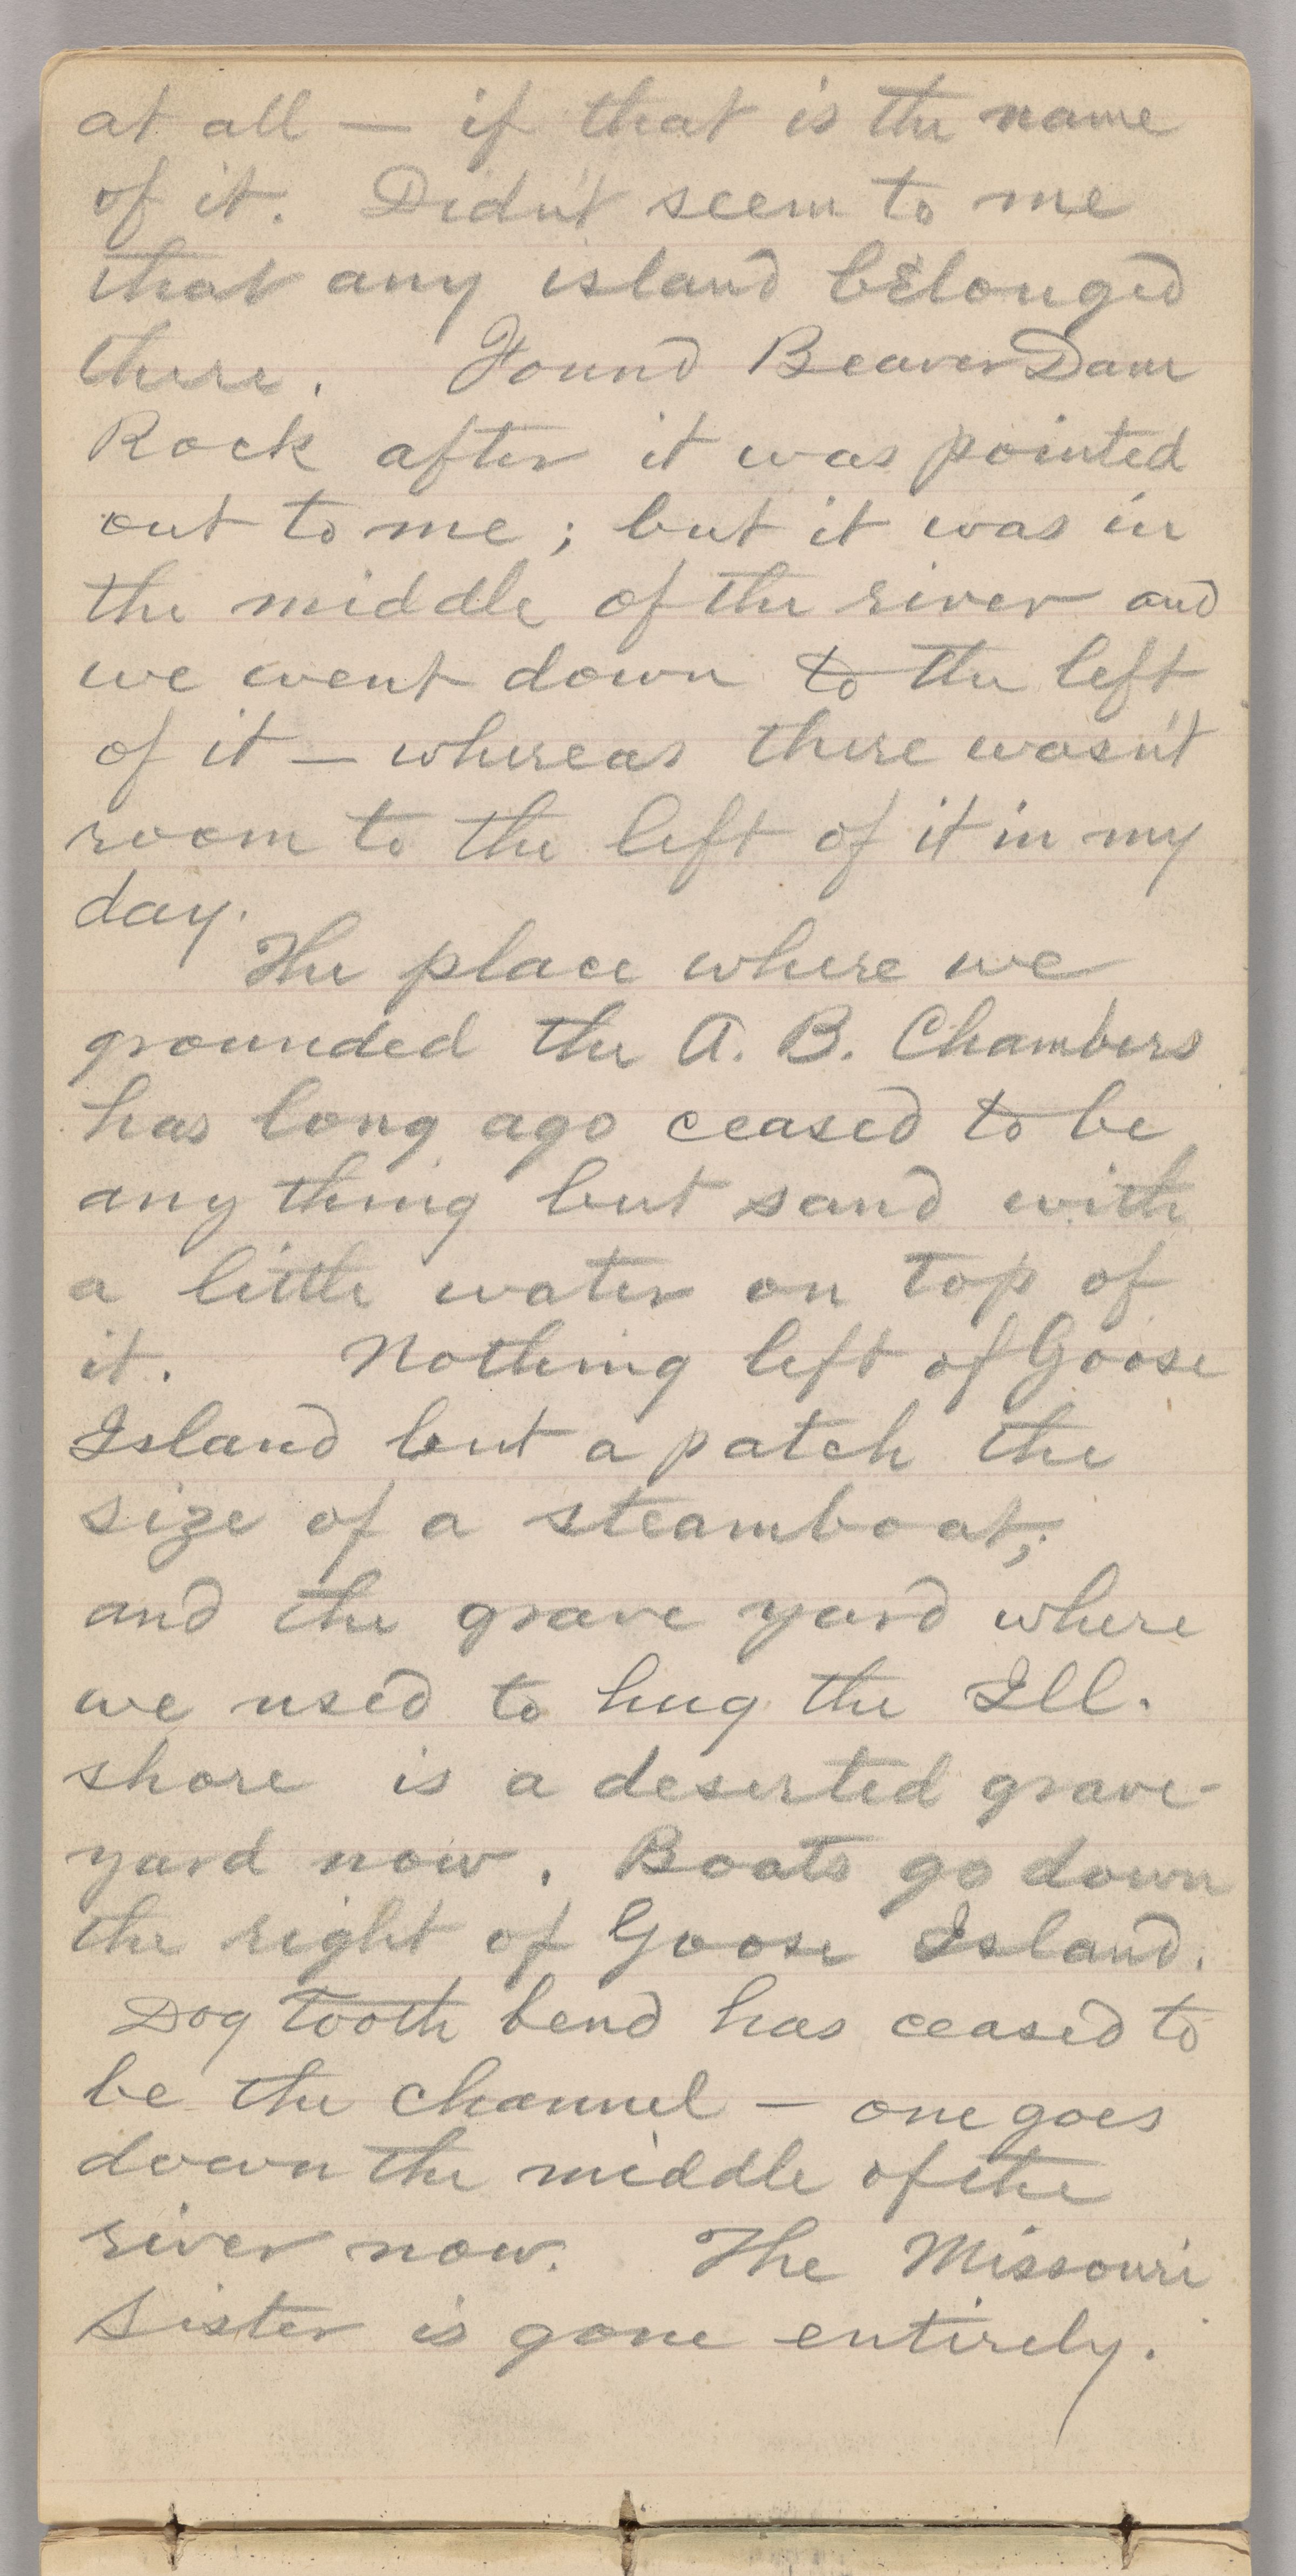 at all — if that is the name
of it. Didn't seem to me
that any island belonged
there. Found Beaver Dam
Rock after it was pointed
out to me; but it was in
the middle of the river and
we went down to the left
of it — whereas there wasn't
room to the left of it in my
day.
The place where we
grounded the A. B. Chambers
has long ago ceased to be
any thing but sand with
a little water on top of
it. Nothing left of Goose
Island but a patch the
size of a steamboat;
and the grave yard where
we used to hug the Ill.
shore is a deserted grave-
yard now. Boats go down
the right of Goose Island.
Dog Tooth bend has ceased to
be the channel — one goes
down the middle of the
river now. The Missouri
Sister is gone entirely.